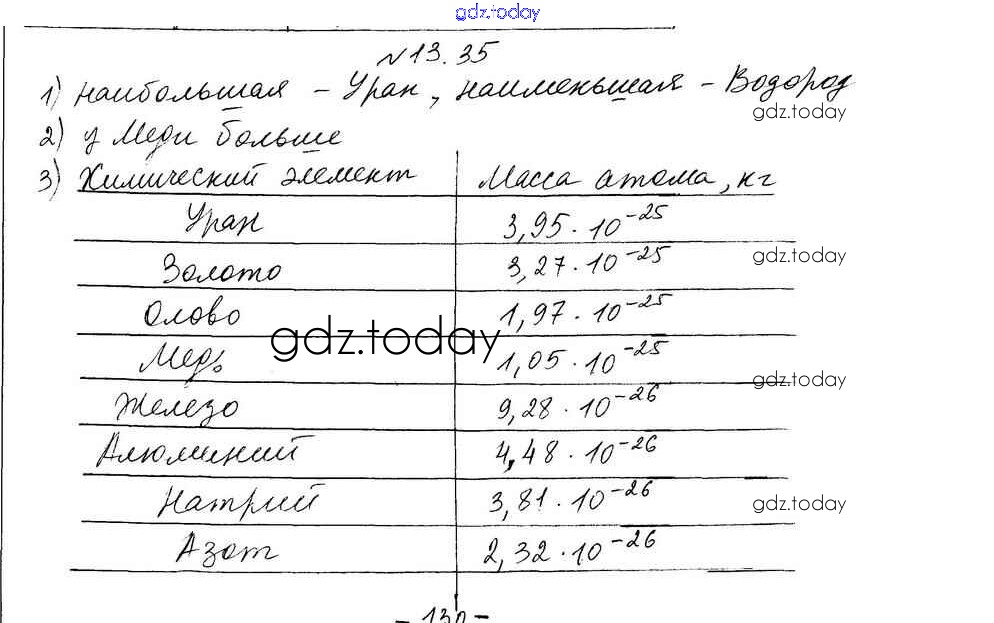 gdz.today
№13.35
1) наибольшая - Уран, наименьшая - Водород
gdz.today
2) у Меди больше
3) Химический элемент Масса атома, кг
Уран 3,95·10⁻²⁵
Золото 3,27·10⁻²⁵
gdz.today
Олово 1,97·10⁻²⁵
gdz.today
Медь 1,05·10⁻²⁵
gdz.today
Железо 9,28·10⁻²⁶
Алюминий 4,48·10⁻²⁶
Натрий 3,81·10⁻²⁶
gdz.today
Азот 2,32·10⁻²⁶
- 130 -